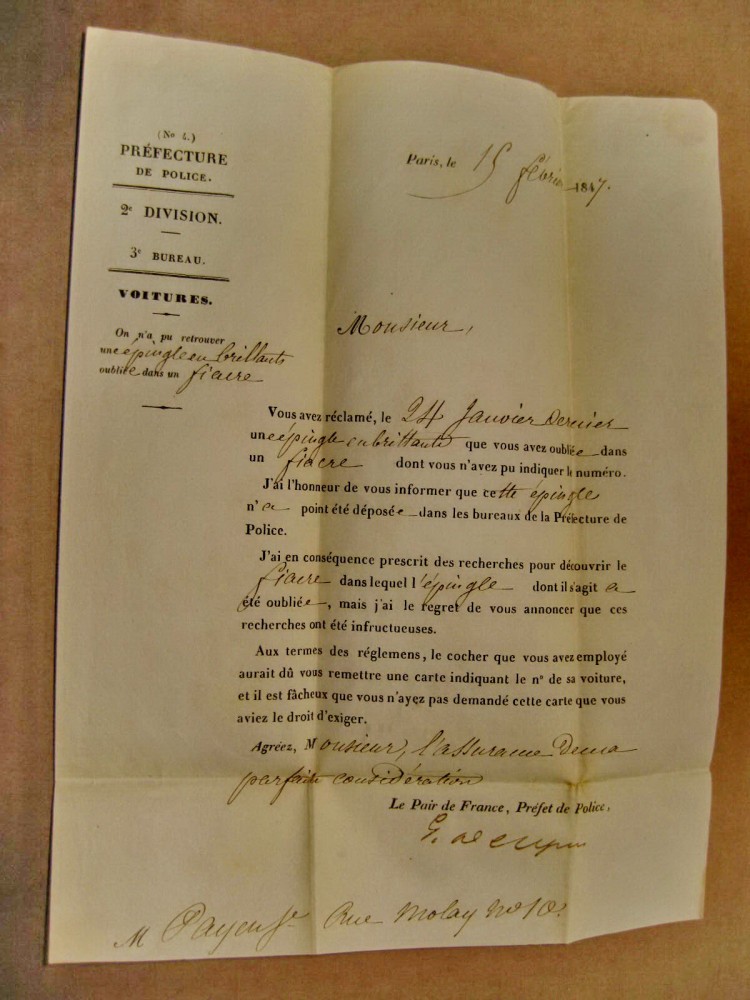 (No 4.)
PRÉFECTURE
DE POLICE.
2e DIVISION.
3e BUREAU.
VOITURES.
On n'a pu retrouver
une épingle en brillants
oubliée dans un fiacre
Paris, le 15 février 1847.
Monsieur,
Vous avez réclamé, le 24 Janvier dernier
une épingle en brillants que vous avez oubliée dans
un fiacre dont vous n'avez pu indiquer le numéro.
J'ai l'honneur de vous informer que cette épingle
n'a point été déposée dans les bureaux de la Préfecture de
Police.
J'ai en conséquence prescrit des recherches pour découvrir le
fiacre dans lequel l'épingle dont il s'agit a
été oubliée, mais j'ai le regret de vous annoncer que ces
recherches ont été infructueuses.
Aux termes des réglemens, le cocher que vous avez employé
aurait dû vous remettre une carte indiquant le no de sa voiture,
et il est fâcheux que vous n'ayez pas demandé cette carte que vous
aviez le droit d'exiger.
Agréez, Monsieur, l'assurance de ma
parfaite considération
Le Pair de France, Préfet de Police,
M Payen Rue Molay No 10.